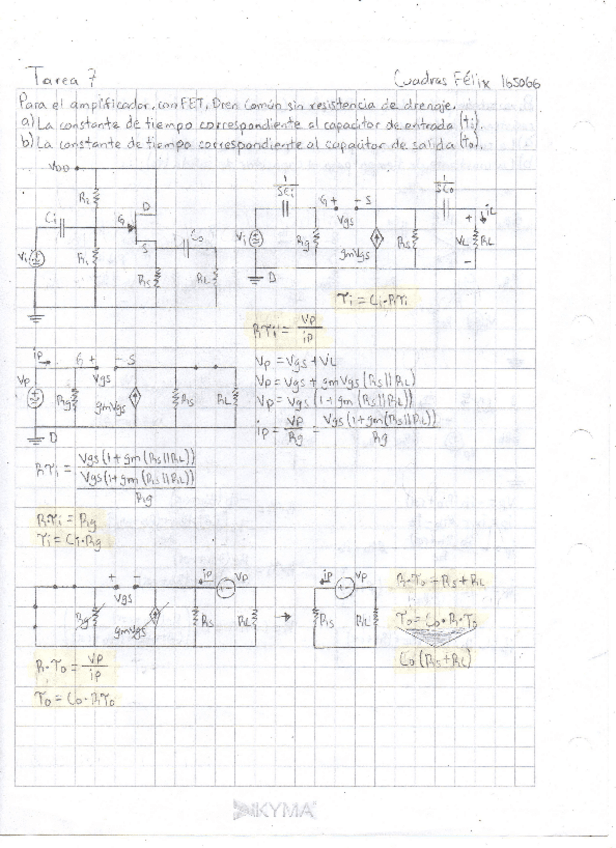 Tarea 7 Cuadras Félix 165066
Para el amplificador con FET, Dren Común sin resistencia de drenaje.
a) La constante de tiempo correspondiente al capacitor de entrada (τi).
b) La constante de tiempo correspondiente al capacitor de salida (τo).
VDD
R2
D
Ci
G
S
Co
Vi
R1
Rs
RL
1/SCi
G + - S
Vgs
1/SCo
iL
Vi
Rg
gmVgs
Rs
+
VL
-
RL
D
τi = Ci·Rτi
Rτi = Vp/ip
ip
G + - S
Vgs
Vp
Rg
gmVgs
Rs
RL
D
Vp = Vgs + VL
Vp = Vgs + gmVgs (Rs||RL)
Vp = Vgs (1+gm (Rs||RL))
ip = Vp/Rg = Vgs(1+gm(Rs||RL))/Rg
Rτi = Vgs(1+gm(Rs||RL)) / (Vgs(1+gm(Rs||RL))/Rg)
Rτi = Rg
τi = Ci·Rg
+ -
Vgs
ip
Vp
+ -
Rg
gmVgs
Rs
RL
→
ip
Vp
+ -
Rs
RL
R·τo = Rs + RL
τo = Co·R·τo
Co (Rs+RL)
R·τo = Vp/ip
τo = Co·Rτo
KYMA